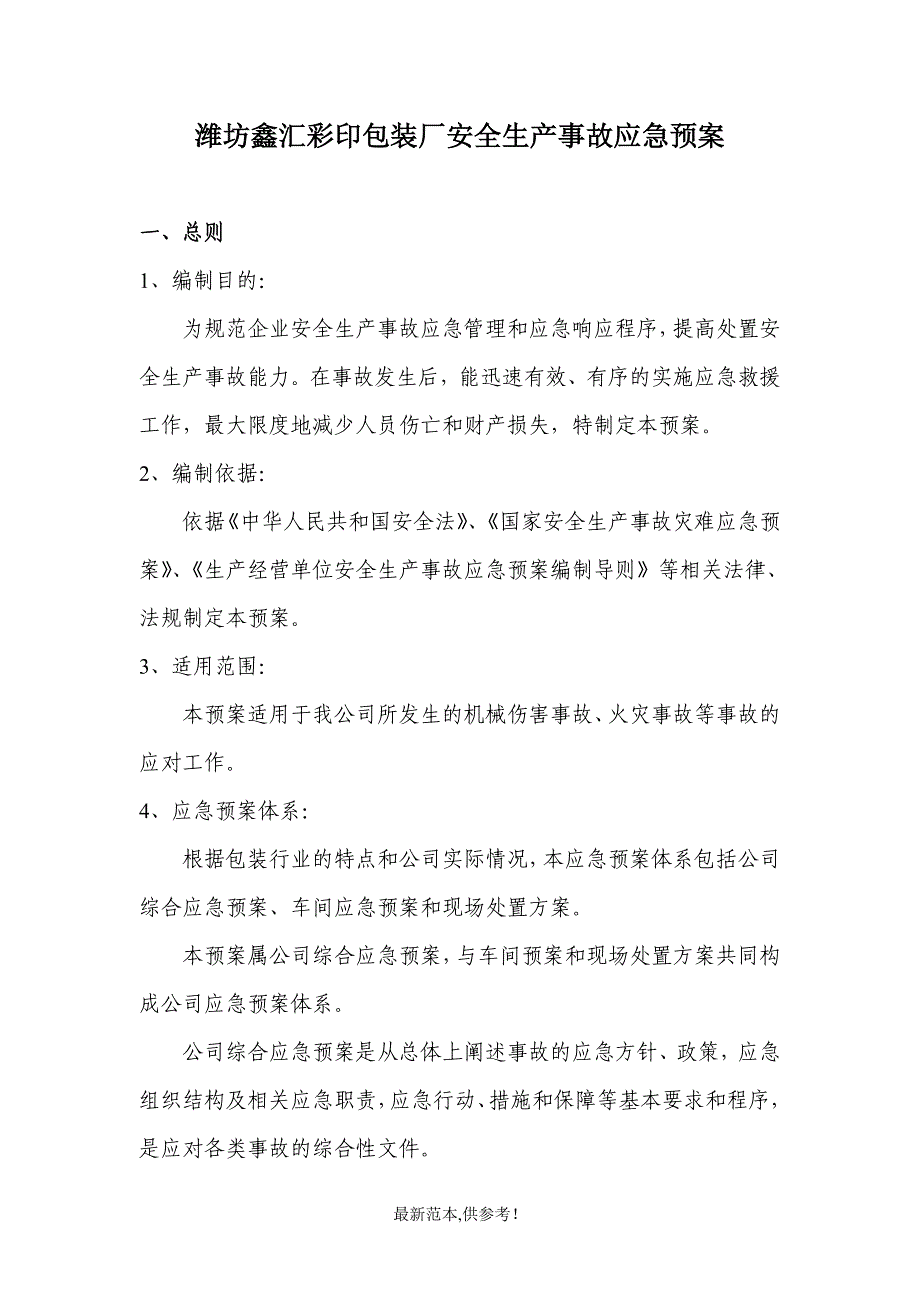 潍坊鑫汇彩印包装厂安全生产事故应急预案
一、总则
1、编制目的：
为规范企业安全生产事故应急管理和应急响应程序，提高处置安
全生产事故能力。在事故发生后，能迅速有效、有序的实施应急救援
工作，最大限度地减少人员伤亡和财产损失，特制定本预案。
2、编制依据：
依据《中华人民共和国安全法》、《国家安全生产事故灾难应急预
案》、《生产经营单位安全生产事故应急预案编制导则》等相关法律、
法规制定本预案。
3、适用范围：
本预案适用于我公司所发生的机械伤害事故、火灾事故等事故的
应对工作。
4、应急预案体系：
根据包装行业的特点和公司实际情况，本应急预案体系包括公司
综合应急预案、车间应急预案和现场处置方案。
本预案属公司综合应急预案，与车间预案和现场处置方案共同构
成公司应急预案体系。
公司综合应急预案是从总体上阐述事故的应急方针、政策，应急
组织结构及相关应急职责，应急行动、措施和保障等基本要求和程序，
是应对各类事故的综合性文件。
最新范本,供参考！